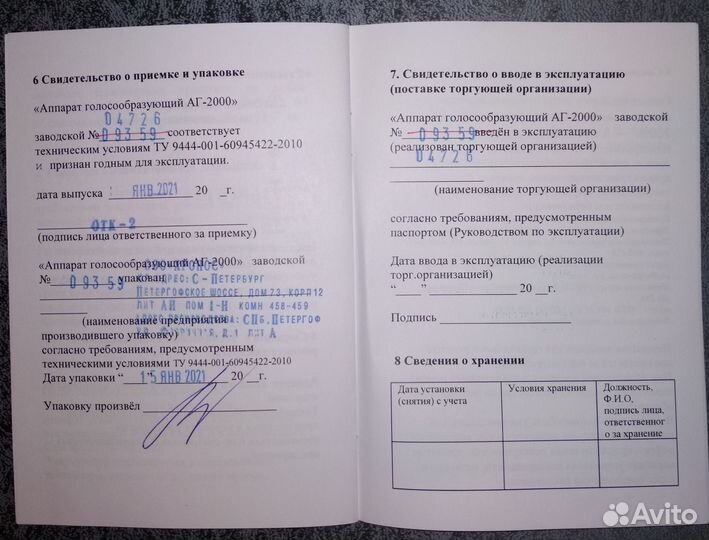 6 Свидетельство о приемке и упаковке
«Аппарат голосообразующий АГ-2000»
04726
заводской № 09359 соответствует
техническим условиям ТУ 9444-001-60945422-2010
и признан годным для эксплуатации.
дата выпуска ЯНВ.2021 20 _г.
ОТК-2
(подпись лица ответственного за приемку)
«Аппарат голосообразующий АГ-2000» заводской
№ 09359 упакован
АДРЕС: С-ПЕТЕРБУРГ
ПЕТЕРГОФСКОЕ ШОССЕ, ДОМ 73, КОРП 12
ЛИТ АИ ПОМ 1-Н КОМН 458-459
СПБ. ПЕТЕРГОФ
(наименование предприятия
Д.1 ЛИТ А
производившего упаковку)
согласно требованиям, предусмотренным
техническими условиями ТУ 9444-001-60945422-2010
Дата упаковки “ 15 ” ЯНВ 2021 20 __г.
Упаковку произвёл
7. Свидетельство о вводе в эксплуатацию
(поставке торгующей организации)
«Аппарат голосообразующий АГ-2000» заводской
№ 09359 введён в эксплуатацию
(реализован торгующей организацией)
04726
(наименование торгующей организации)
согласно требованиям, предусмотренным
паспортом (Руководством по эксплуатации)
Дата ввода в эксплуатацию (реализации
торг.организацией)
“____” ______________ 20 __г.
Подпись
8 Сведения о хранении
Дата установки (снятия) с учета
Условия хранения
Должность, Ф.И.О, подпись лица, ответственног о за хранение
Avito